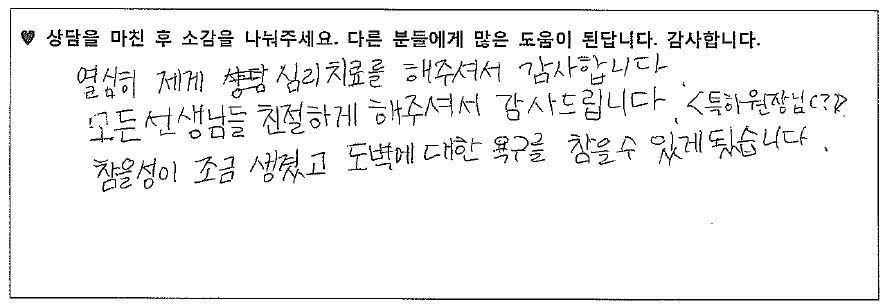 ♥ 상담을 마친 후 소감을 나눠주세요. 다른 분들에게 많은 도움이 된답니다. 감사합니다.
열심히 제게 상담 심리치료를 해주셔서 감사합니다.
모든 선생님들 친절하게 해주셔서 감사드립니다. <특히 원장님(?)>
참을성이 조금 생겼고 도벽에 대한 욕구를 참을 수 있게 됬습니다.